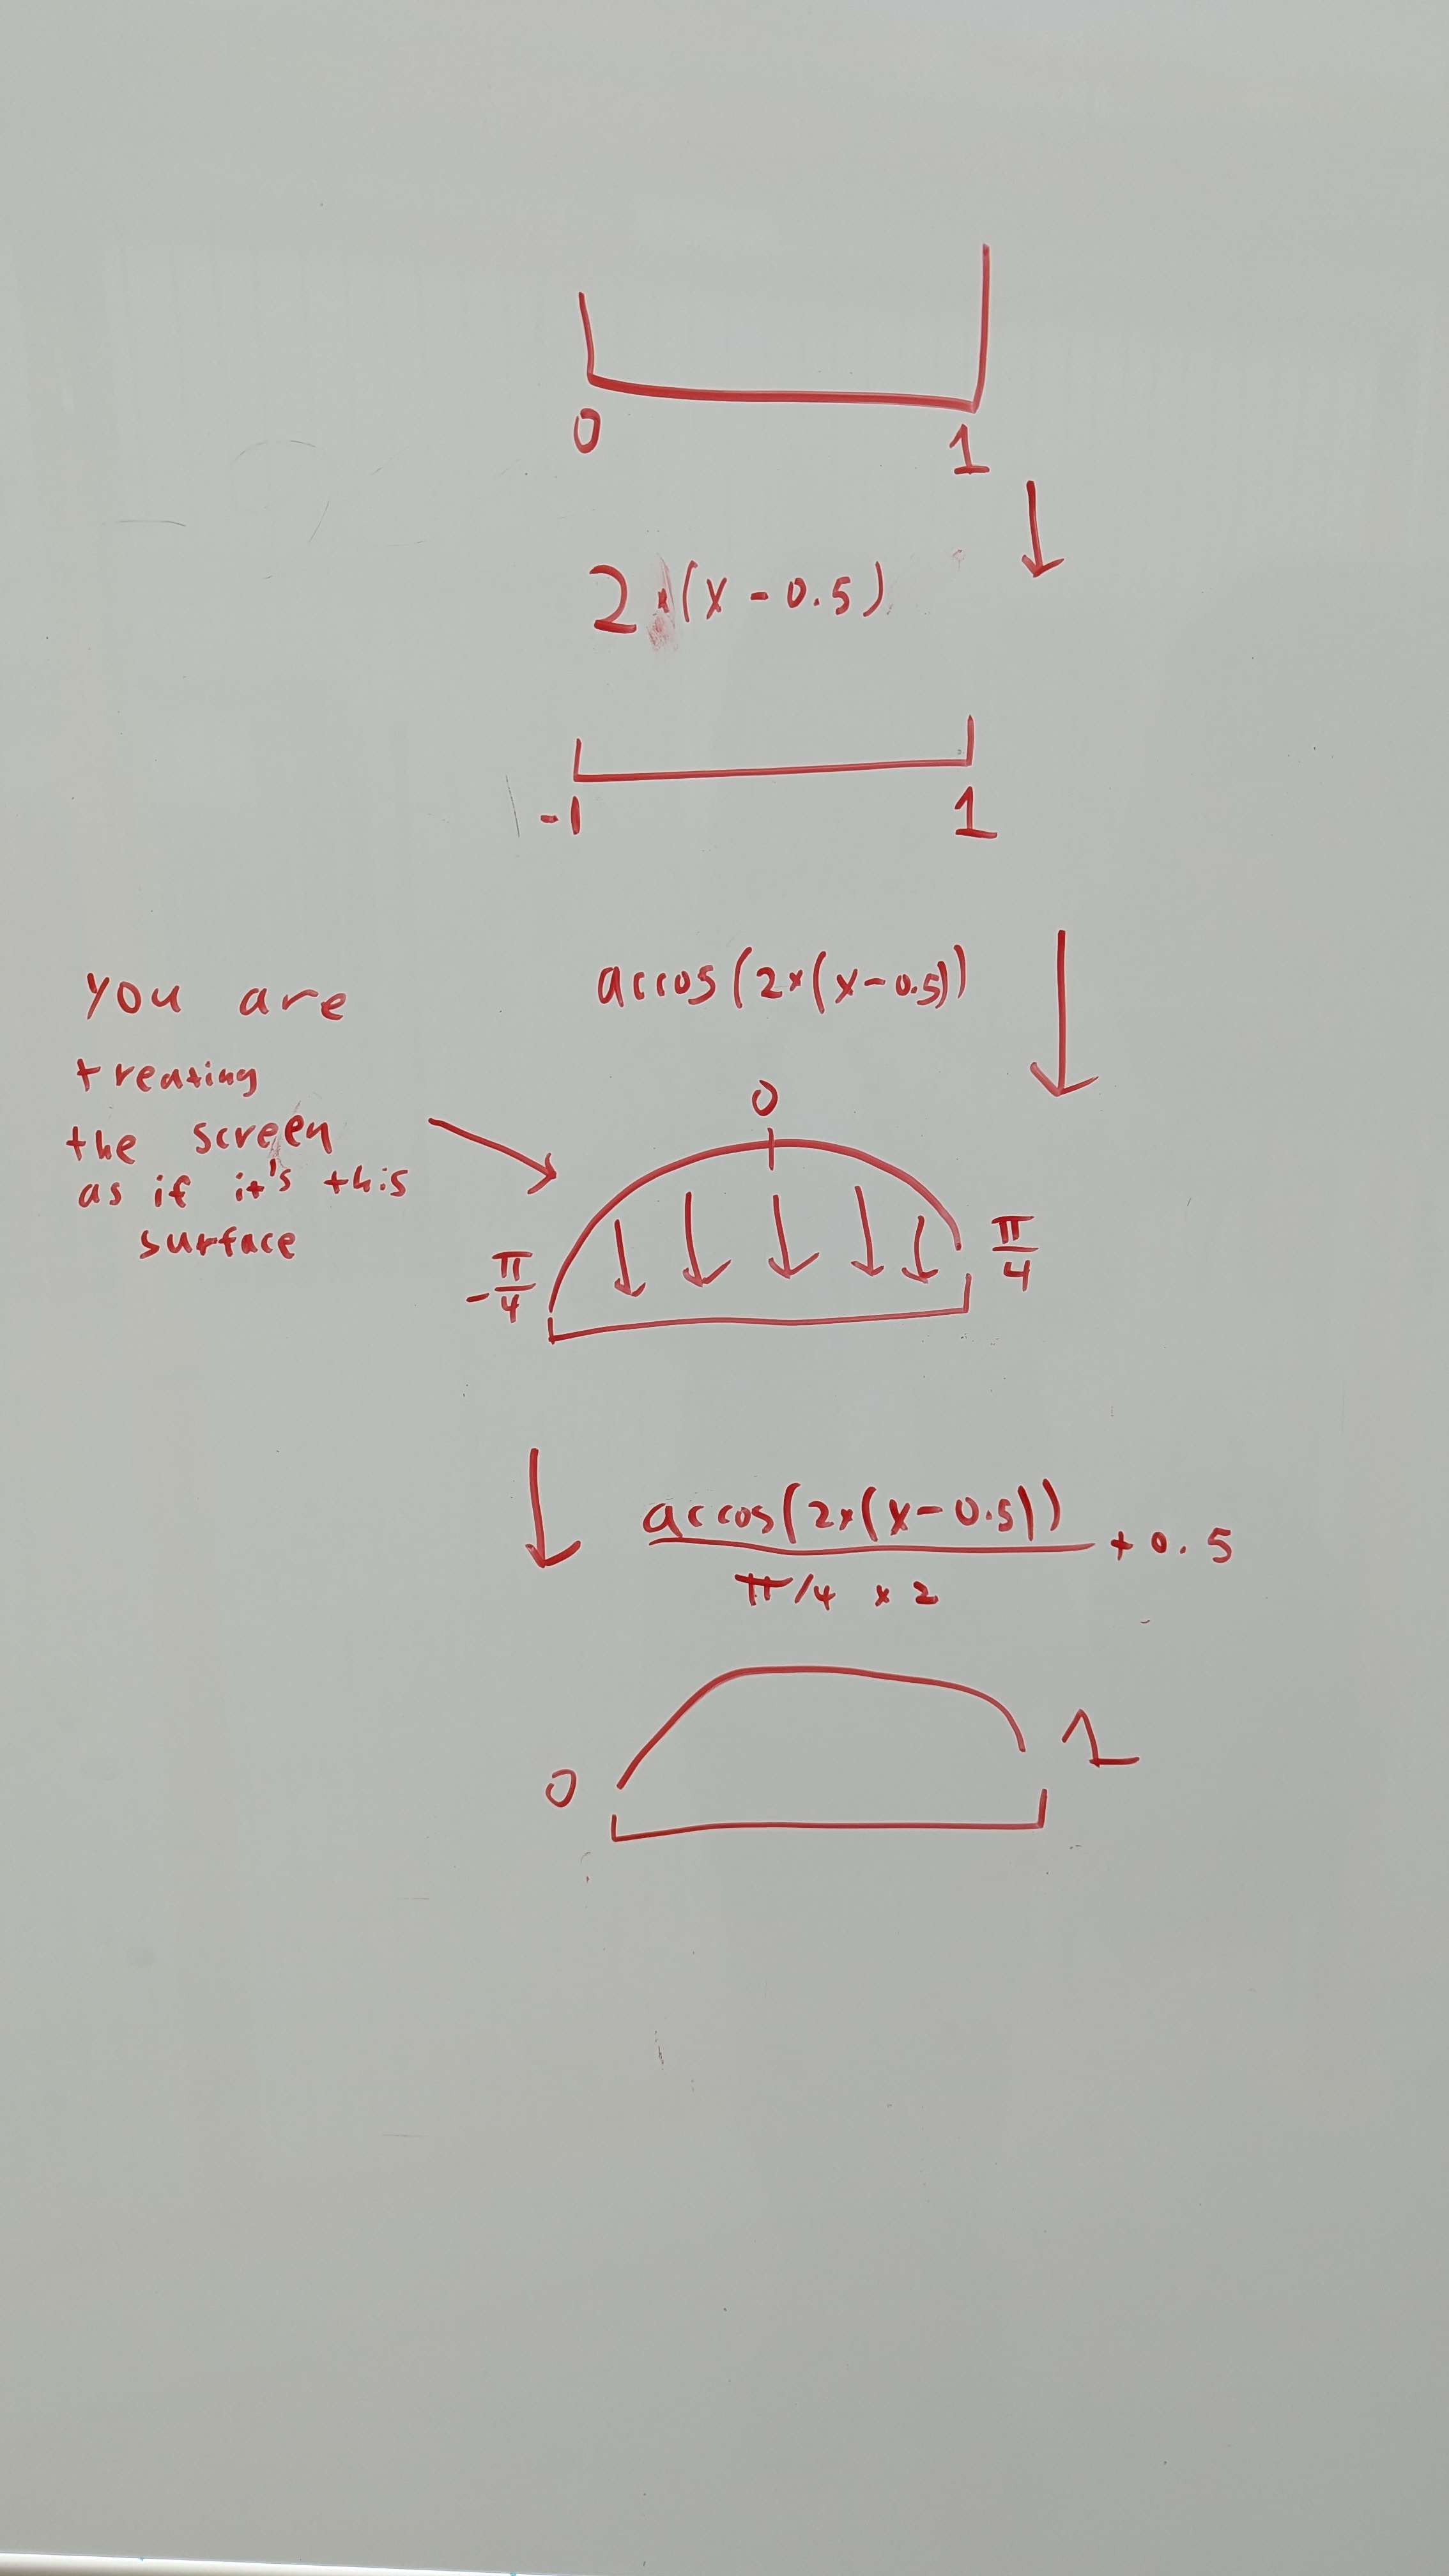 0 1
2*(x-0.5)
-1 1
arccos(2*(x-0.5))
You are
treating
the screen
as if it's this
surface
0
-π/4 π/4
arccos(2*(x-0.5))
π/4 * 2
+ 0.5
0 1